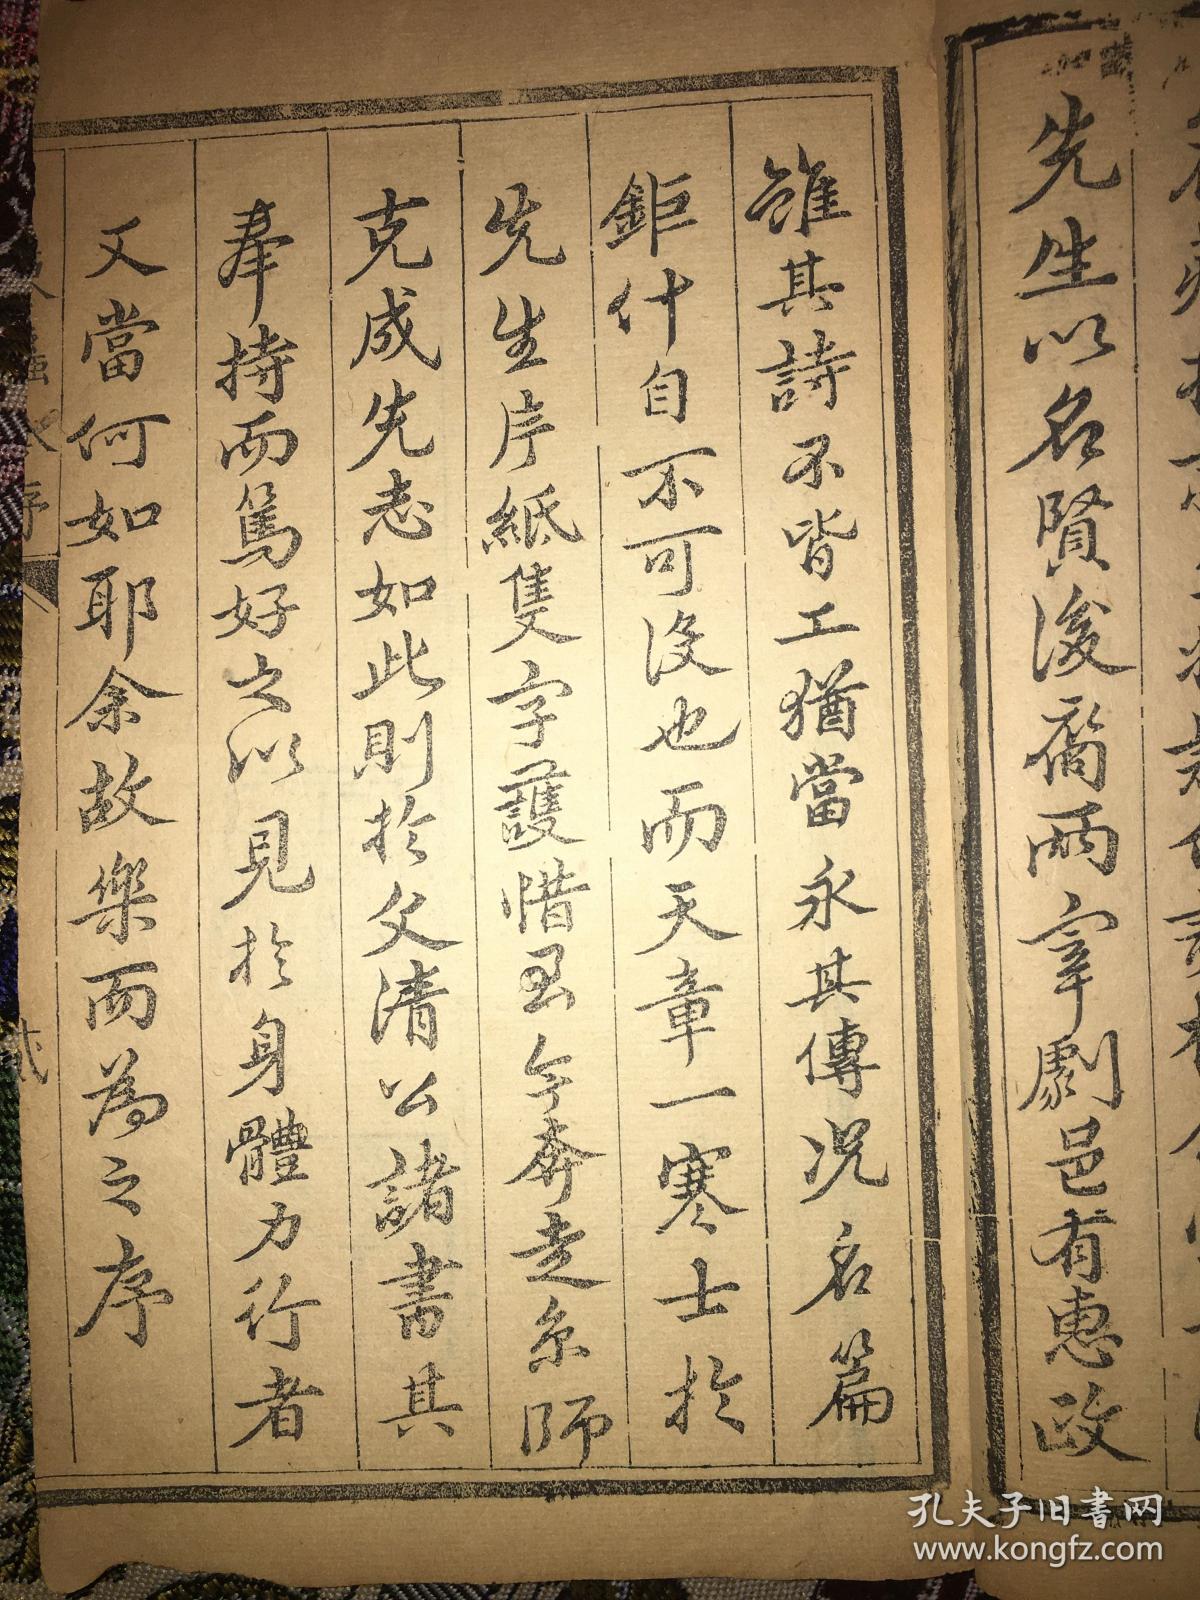 先生以名賢後裔兩宰劇邑有惠政
雖其詩不皆工猶當永其傳況名篇
鉅什自不可沒也而天章一寒士於
先生片紙隻字護惜至今奔走京師
克成先志如此則於父清公諸書其
奉持而篤好之以見於身體力行者
又當何如耶余故樂而為之序
序
貳
孔夫子旧书网
www.kongfz.com